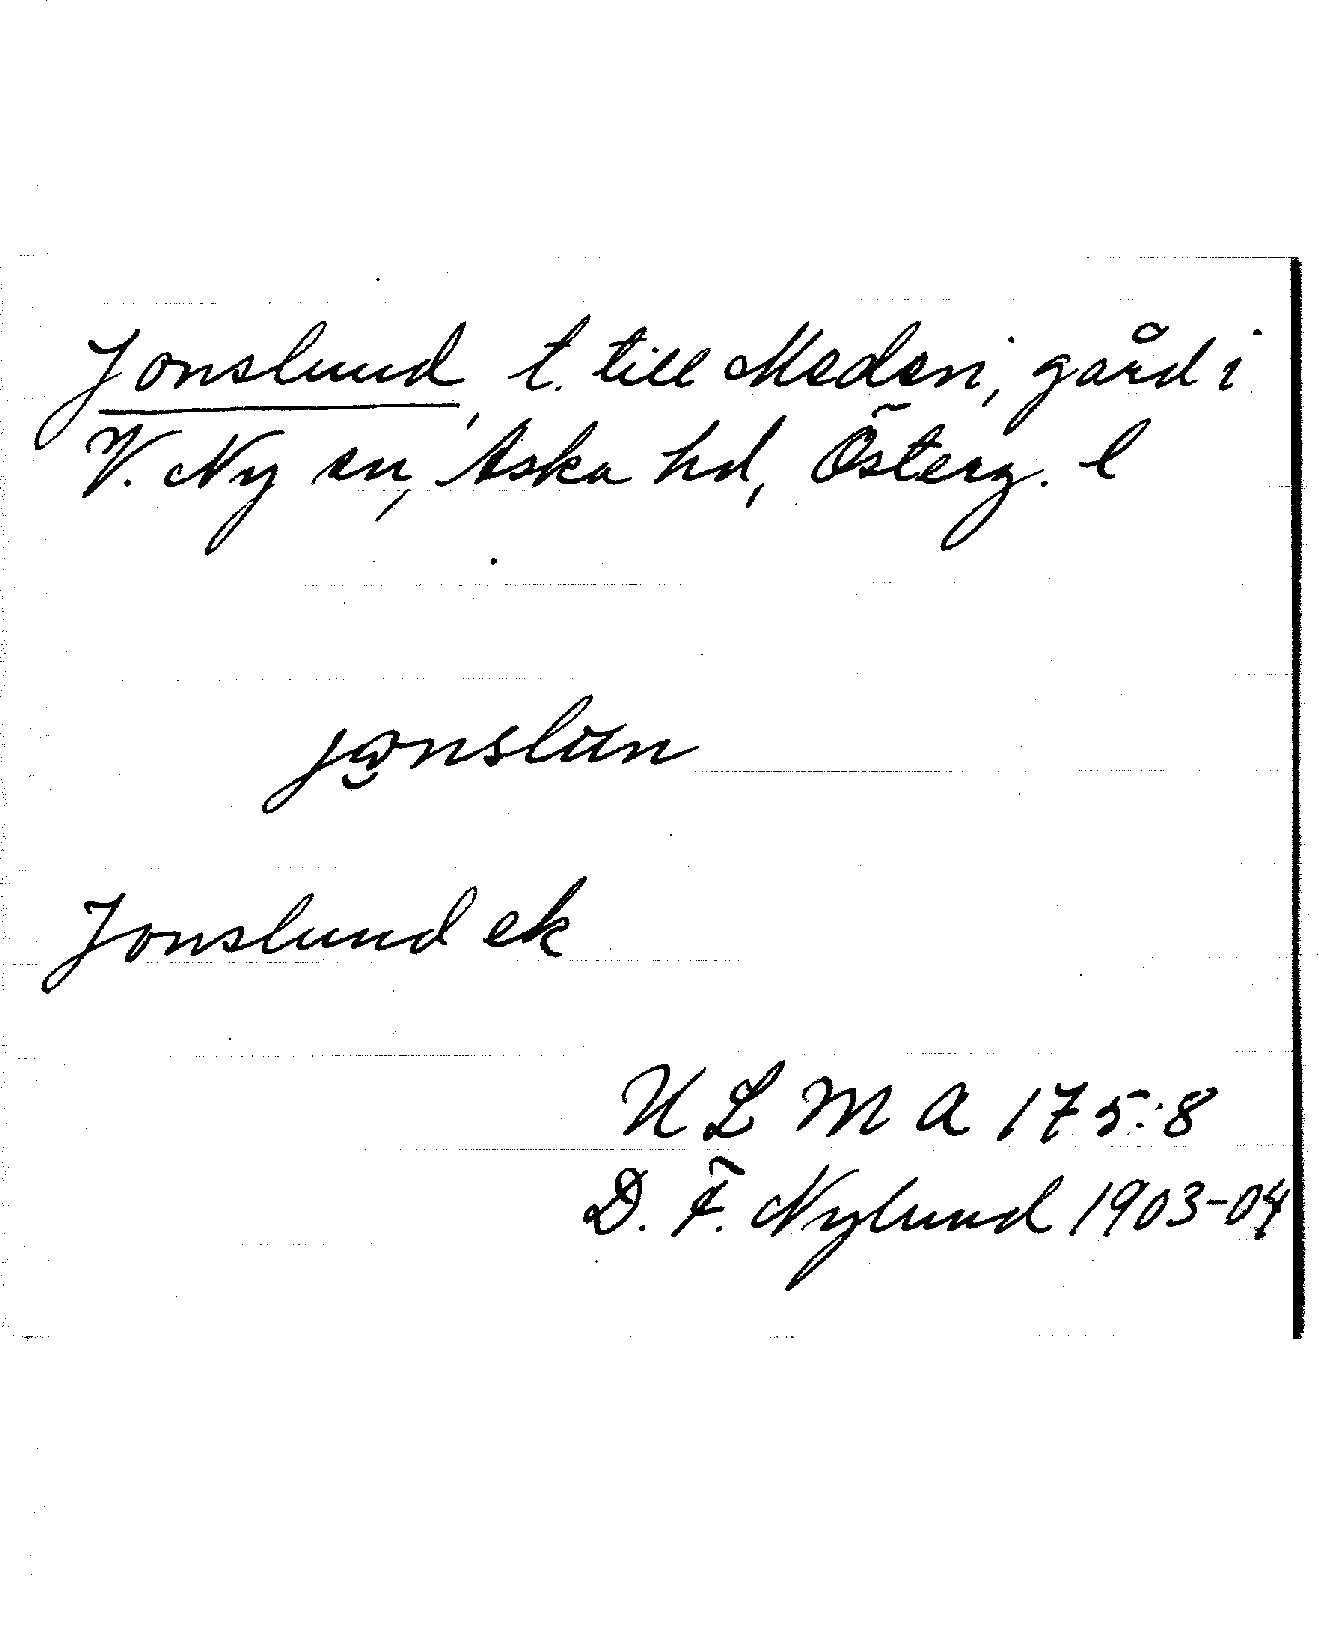 Jonslund, t. till Medevi, gård i
V. Ny sn, Aska hd, Österg. l
jonslun
Jonslund ek
ULMA 175:8
D. F. Nylund 1903-04